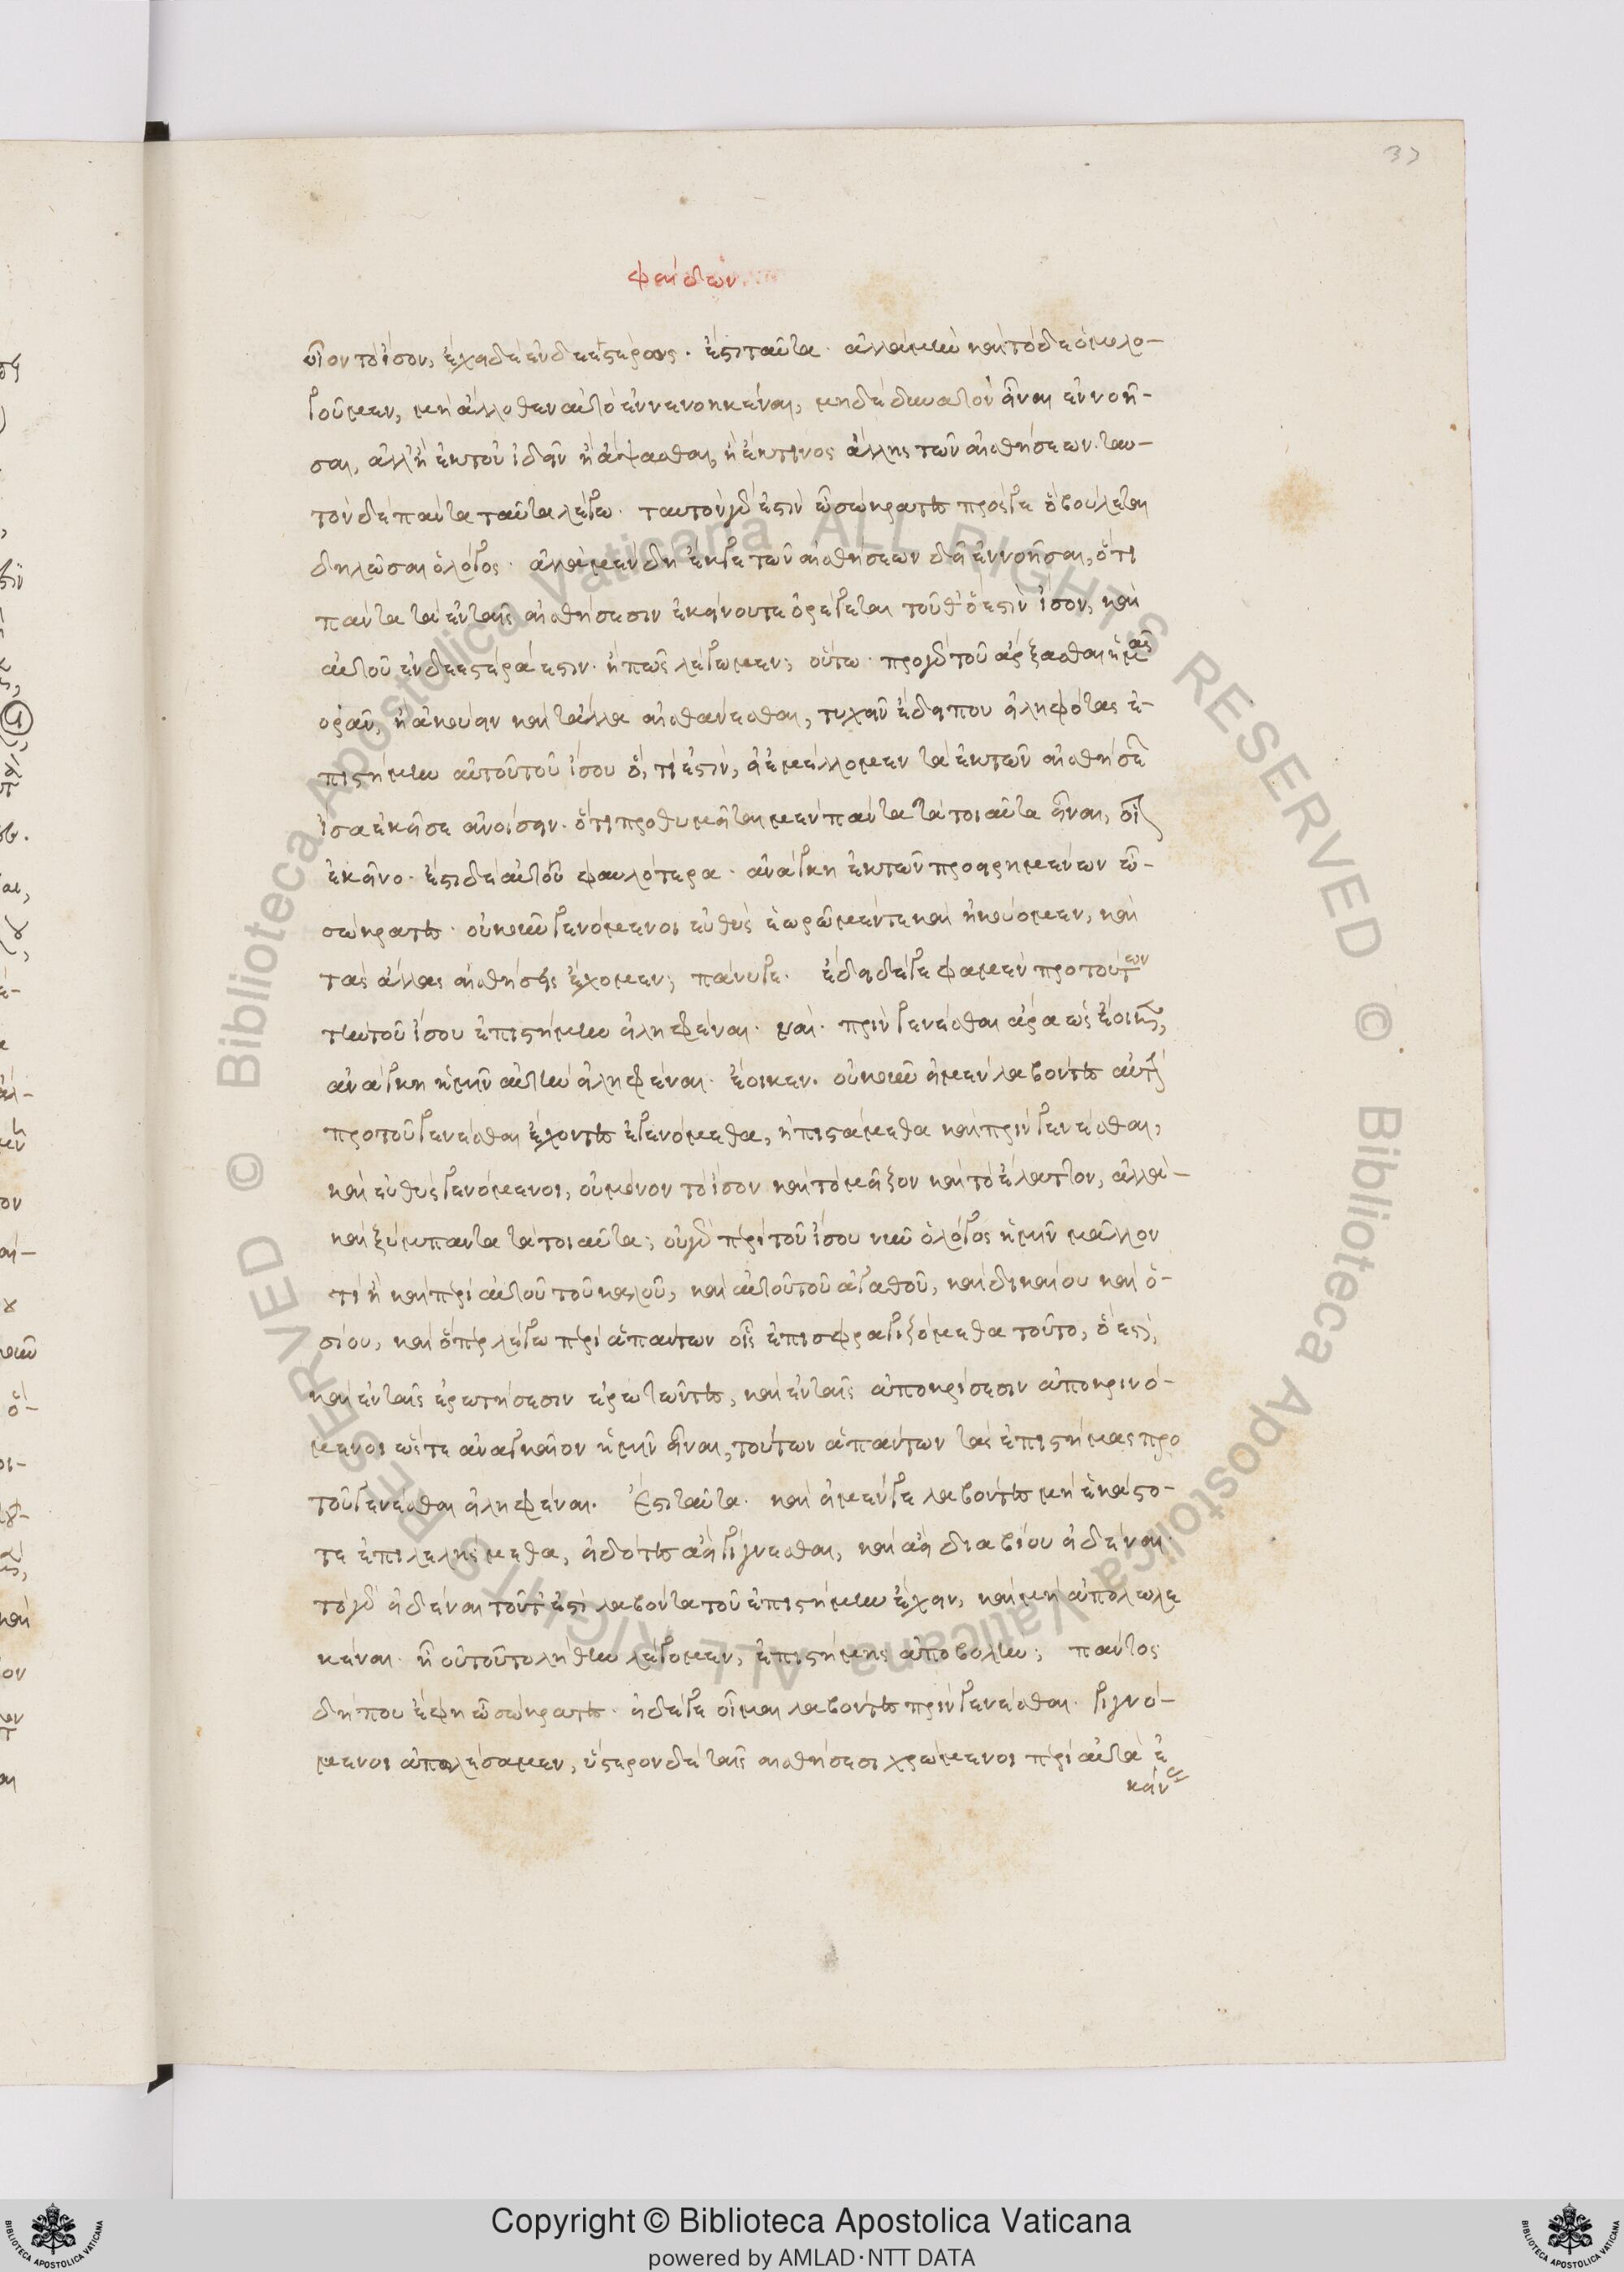 37
φαίδων
οἷον τὸ ἴσον, ἔχει δὲ ἐνδεεστέρως. ἔστι ταῦτα. ἀλλὰ μὴν καὶ τόδε ὁμολο-
γοῦμεν, μὴ ἄλλοθεν αὐτὸ ἐννενοηκέναι, μηδὲ δυνατὸν εἶναι ἐννοῆ-
σαι, ἀλλ' ἢ ἐκ τοῦ ἰδεῖν ἢ ἅψασθαι, ἢ ἔκ τινος ἄλλης τῶν αἰσθήσεων. ταυ-
τὸν δὲ πάντα ταῦτα λέγω. ταυτὸν γὰρ ἐστὶν ὦ σώκρατες πρός γε ὃ βούλεται
δηλῶσαι ὁ λόγος. ἀλλὰ μὲν δὴ ἔκ γε τῶν αἰσθήσεων δεῖ ἐννοῆσαι, ὅτι
πάντα τὰ ἐν ταῖς αἰσθήσεσιν ἐκείνου τε ὀρέγεται τοῦ θ' ὅ ἐστιν ἴσον, καὶ
αὐτοῦ ἐνδεέστερά ἐστιν. ἢ πῶς λέγωμεν; οὕτω. πρὸ γὰρ τοῦ ἄρξασθαι ἡμᾶς
ὁρᾶν, ἢ ἀκούειν καὶ τἄλλα αἰσθάνεσθαι, τυχεῖν ἔδει που εἰληφότας ἐ-
πιστήμην αὐτοῦ τοῦ ἴσου ὅ,τι ἐστὶν, εἰ ἐμέλλομεν τὰ ἐκ τῶν αἰσθήσεων
ἴσα ἐκεῖσε ἀνοίσειν. ὅτι προθυμεῖται μὲν πάντα τὰ τοιαῦτα εἶναι, οἷον
ἐκεῖνο. ἔστι δὲ αὐτοῦ φαυλότερα. ἀνάγκη ἐκ τῶν προειρημένων ὦ-
σώκρατες. οὐκοῦν γενόμενοι εὐθὺς ἑωρῶμέν τε καὶ ἠκούομεν, καὶ
τὰς ἄλλας αἰσθήσεις ἔχομεν; πάνυ γε. ἔδει δέ γε φαμὲν πρὸ τούτων
τὴν τοῦ ἴσου ἐπιστήμην εἰληφέναι. ναί. πρὶν γενέσθαι ἄρα ὡς ἔοικεν,
ἀνάγκη ἡμῖν αὐτὴν εἰληφέναι. ἔοικεν. οὐκοῦν εἰ μὲν λαβόντες αὐτὴν
πρὸ τοῦ γενέσθαι ἔχοντες ἐγενόμεθα, ἠπιστάμεθα καὶ πρὶν γενέσθαι,
καὶ εὐθὺς γενόμενοι, οὐ μόνον τὸ ἴσον καὶ τὸ μεῖζον καὶ τὸ ἔλαττον, ἀλλὰ-
καὶ ξύμπαντα τὰ τοιαῦτα; οὐ γὰρ περὶ τοῦ ἴσου νῦν ὁ λόγος ἡμῖν μᾶλλον
τι ἢ καὶ περὶ αὐτοῦ τοῦ καλοῦ, καὶ αὐτοῦ τοῦ ἀγαθοῦ, καὶ δικαίου καὶ ὁ-
σίου, καὶ ὅπερ λέγω περὶ ἁπάντων οἷς ἐπισφραγιζόμεθα τοῦτο, ὅ ἐστι,
καὶ ἐν ταῖς ἐρωτήσεσιν ἐρωτῶντες, καὶ ἐν ταῖς ἀποκρίσεσιν ἀποκρινό-
μενοι ὥστε ἀναγκαῖον ἡμῖν εἶναι, τούτων ἁπάντων τὰς ἐπιστήμας πρὸ
τοῦ γενέσθαι εἰληφέναι. Ἔστι ταῦτα. καὶ εἰ μέν γε λαβόντες μὴ ἑκάστο-
τε ἐπιλελήσμεθα, εἰδότας ἀεὶ γίγνεσθαι, καὶ ἀεὶ διὰ βίου εἰδέναι.
τὸ γὰρ εἰδέναι τοῦτ' ἐστὶ λαβόντα του ἐπιστήμην ἔχειν, καὶ μὴ ἀπολωλε
κέναι. ἢ οὐ τοῦτο λήθην λέγομεν, ἐπιστήμης ἀποβολήν; πάντως
δήπου ἔφη ὦ σώκρατες. εἰ δέ γε οἶμαι λαβόντες πρὶν γενέσθαι. γιγνό-
μενοι ἀπωλέσαμεν, ὕστερον δὲ ταῖς αἰσθήσεσι χρώμενοι περὶ αὐτὰ ἐ
κείνας
Copyright © Biblioteca Apostolica Vaticana
powered by AMLAD·NTT DATA